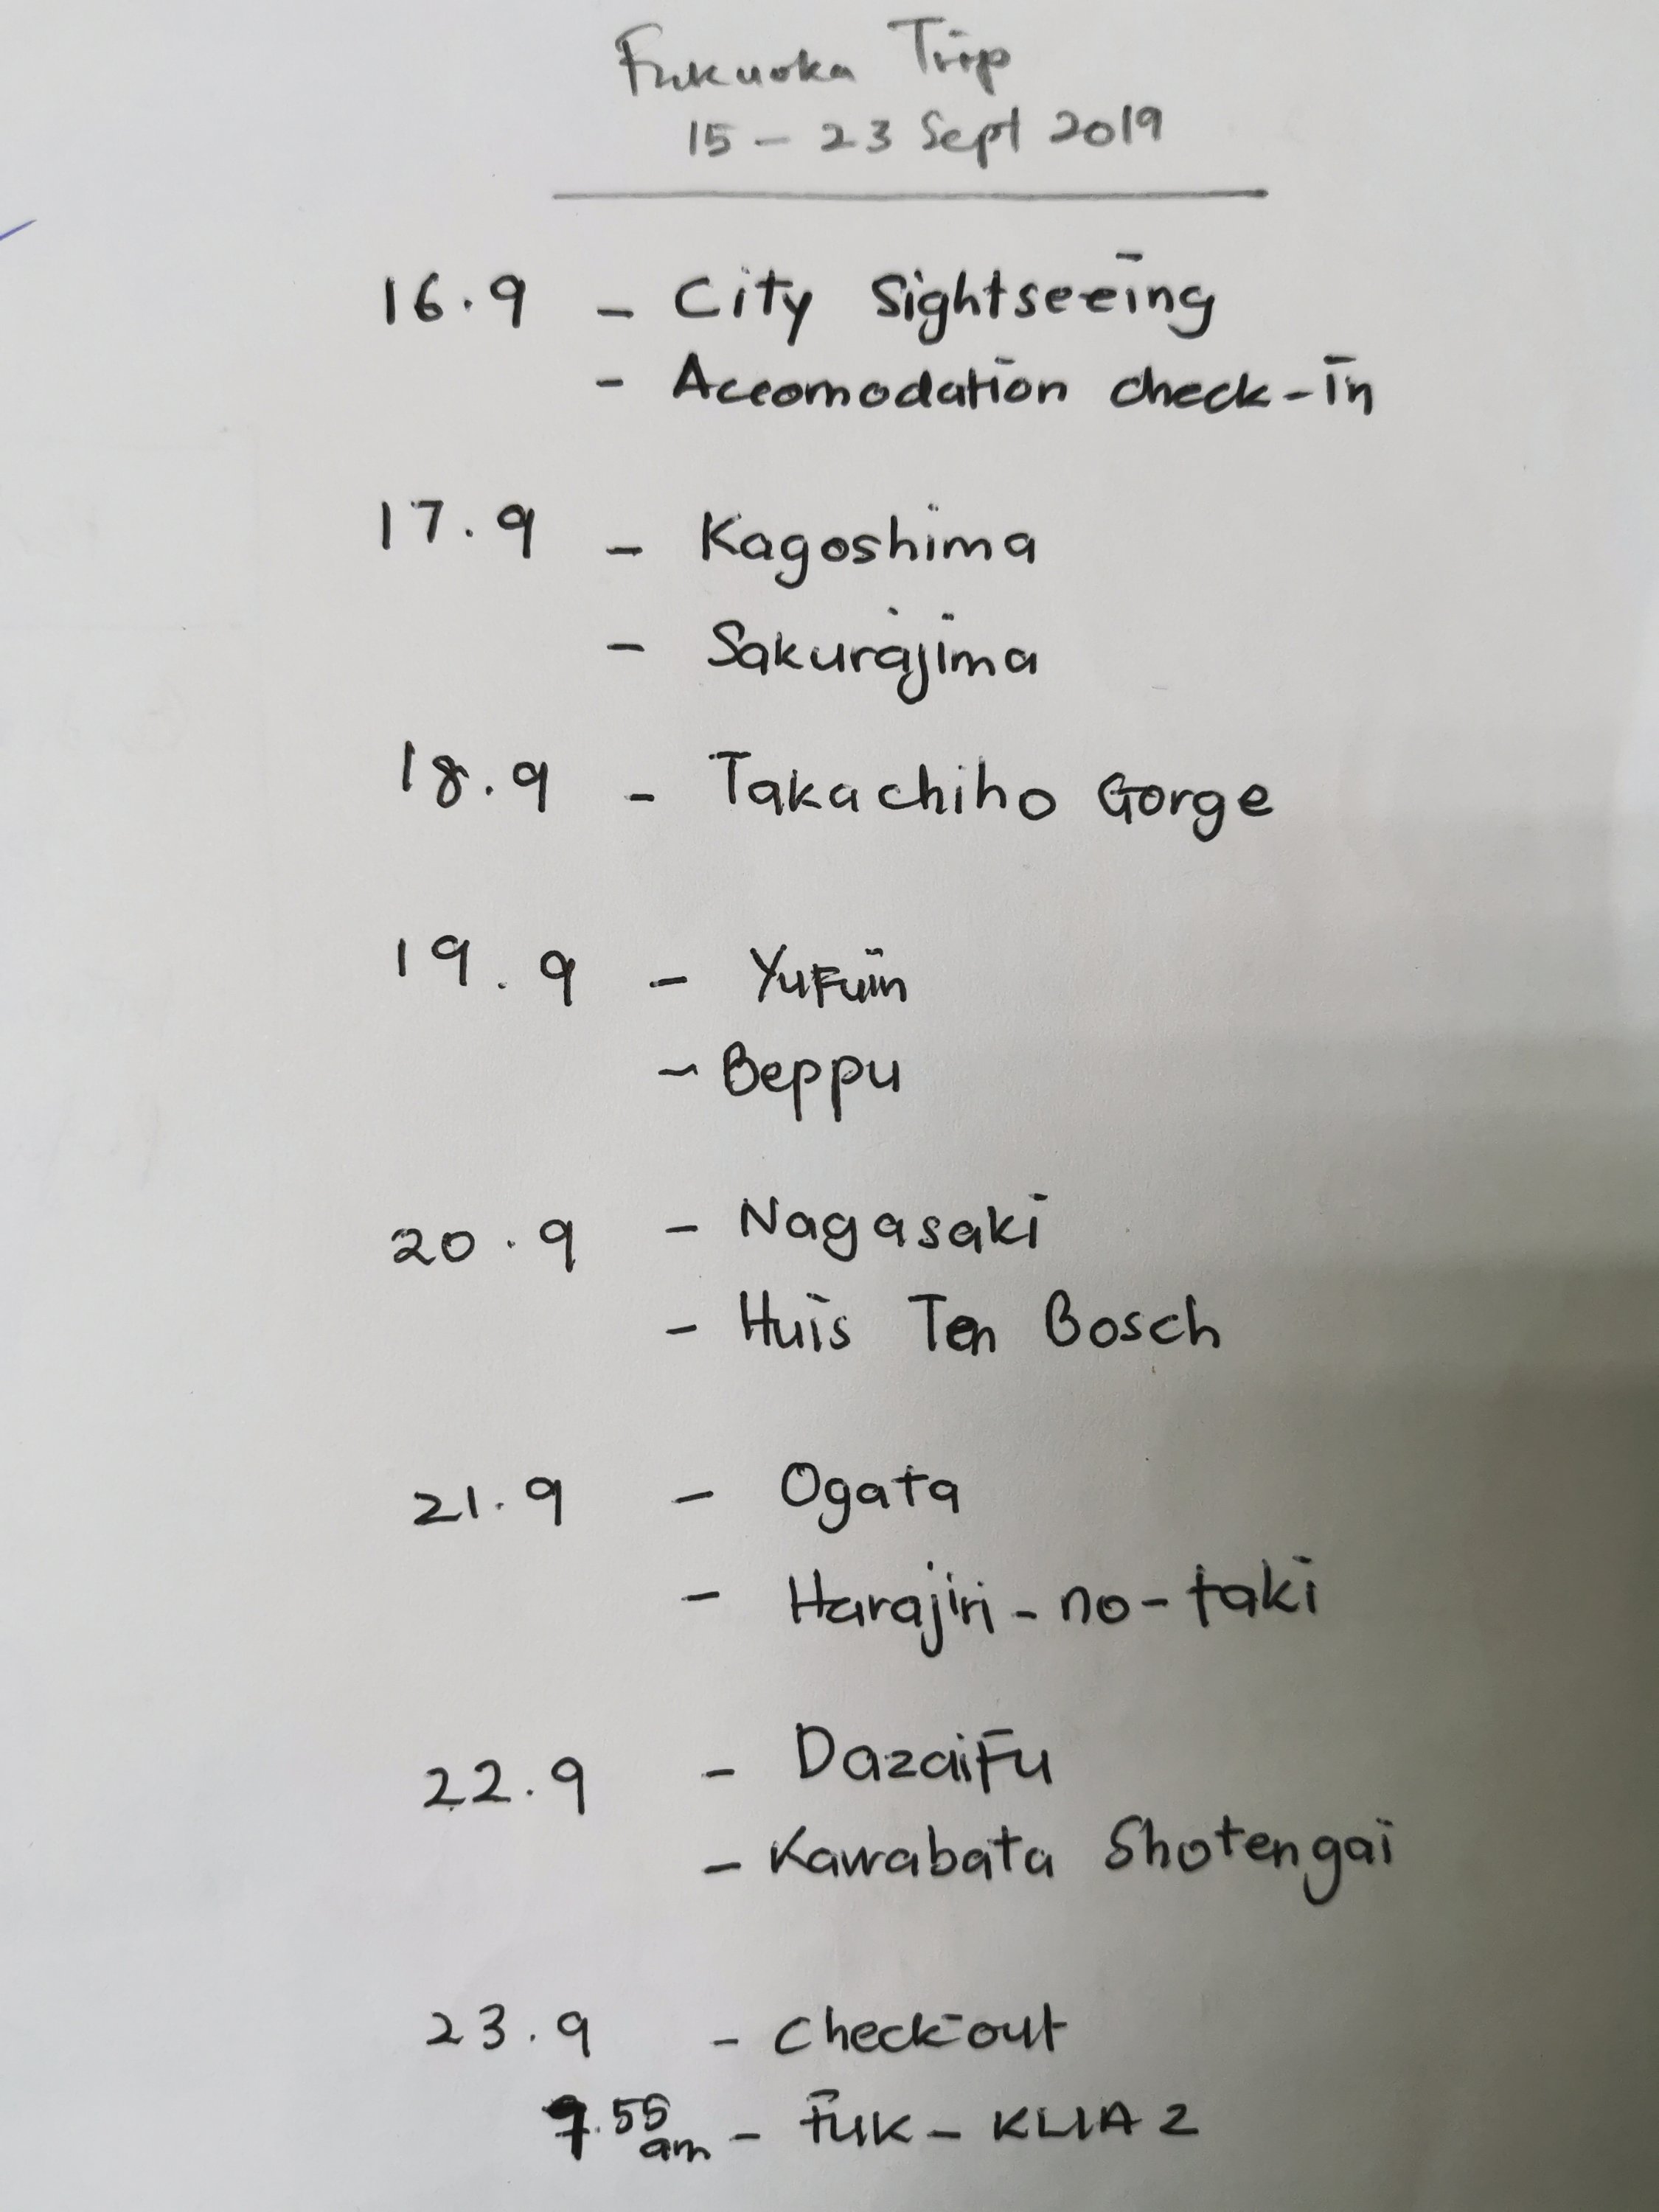 Fukuoka Trip
15 - 23 Sept 2019
16.9 - City Sightseeing
- Accomodation check-in
17.9 - Kagoshima
- Sakurajima
18.9 - Takachiho Gorge
19.9 - Yufuin
- Beppu
20.9 - Nagasaki
- Huis Ten Bosch
21.9 - Ogata
- Harajiri-no-taki
22.9 - Dazaifu
- Kawabata Shotengai
23.9 - Check-out
am - FUK - KLIA 2